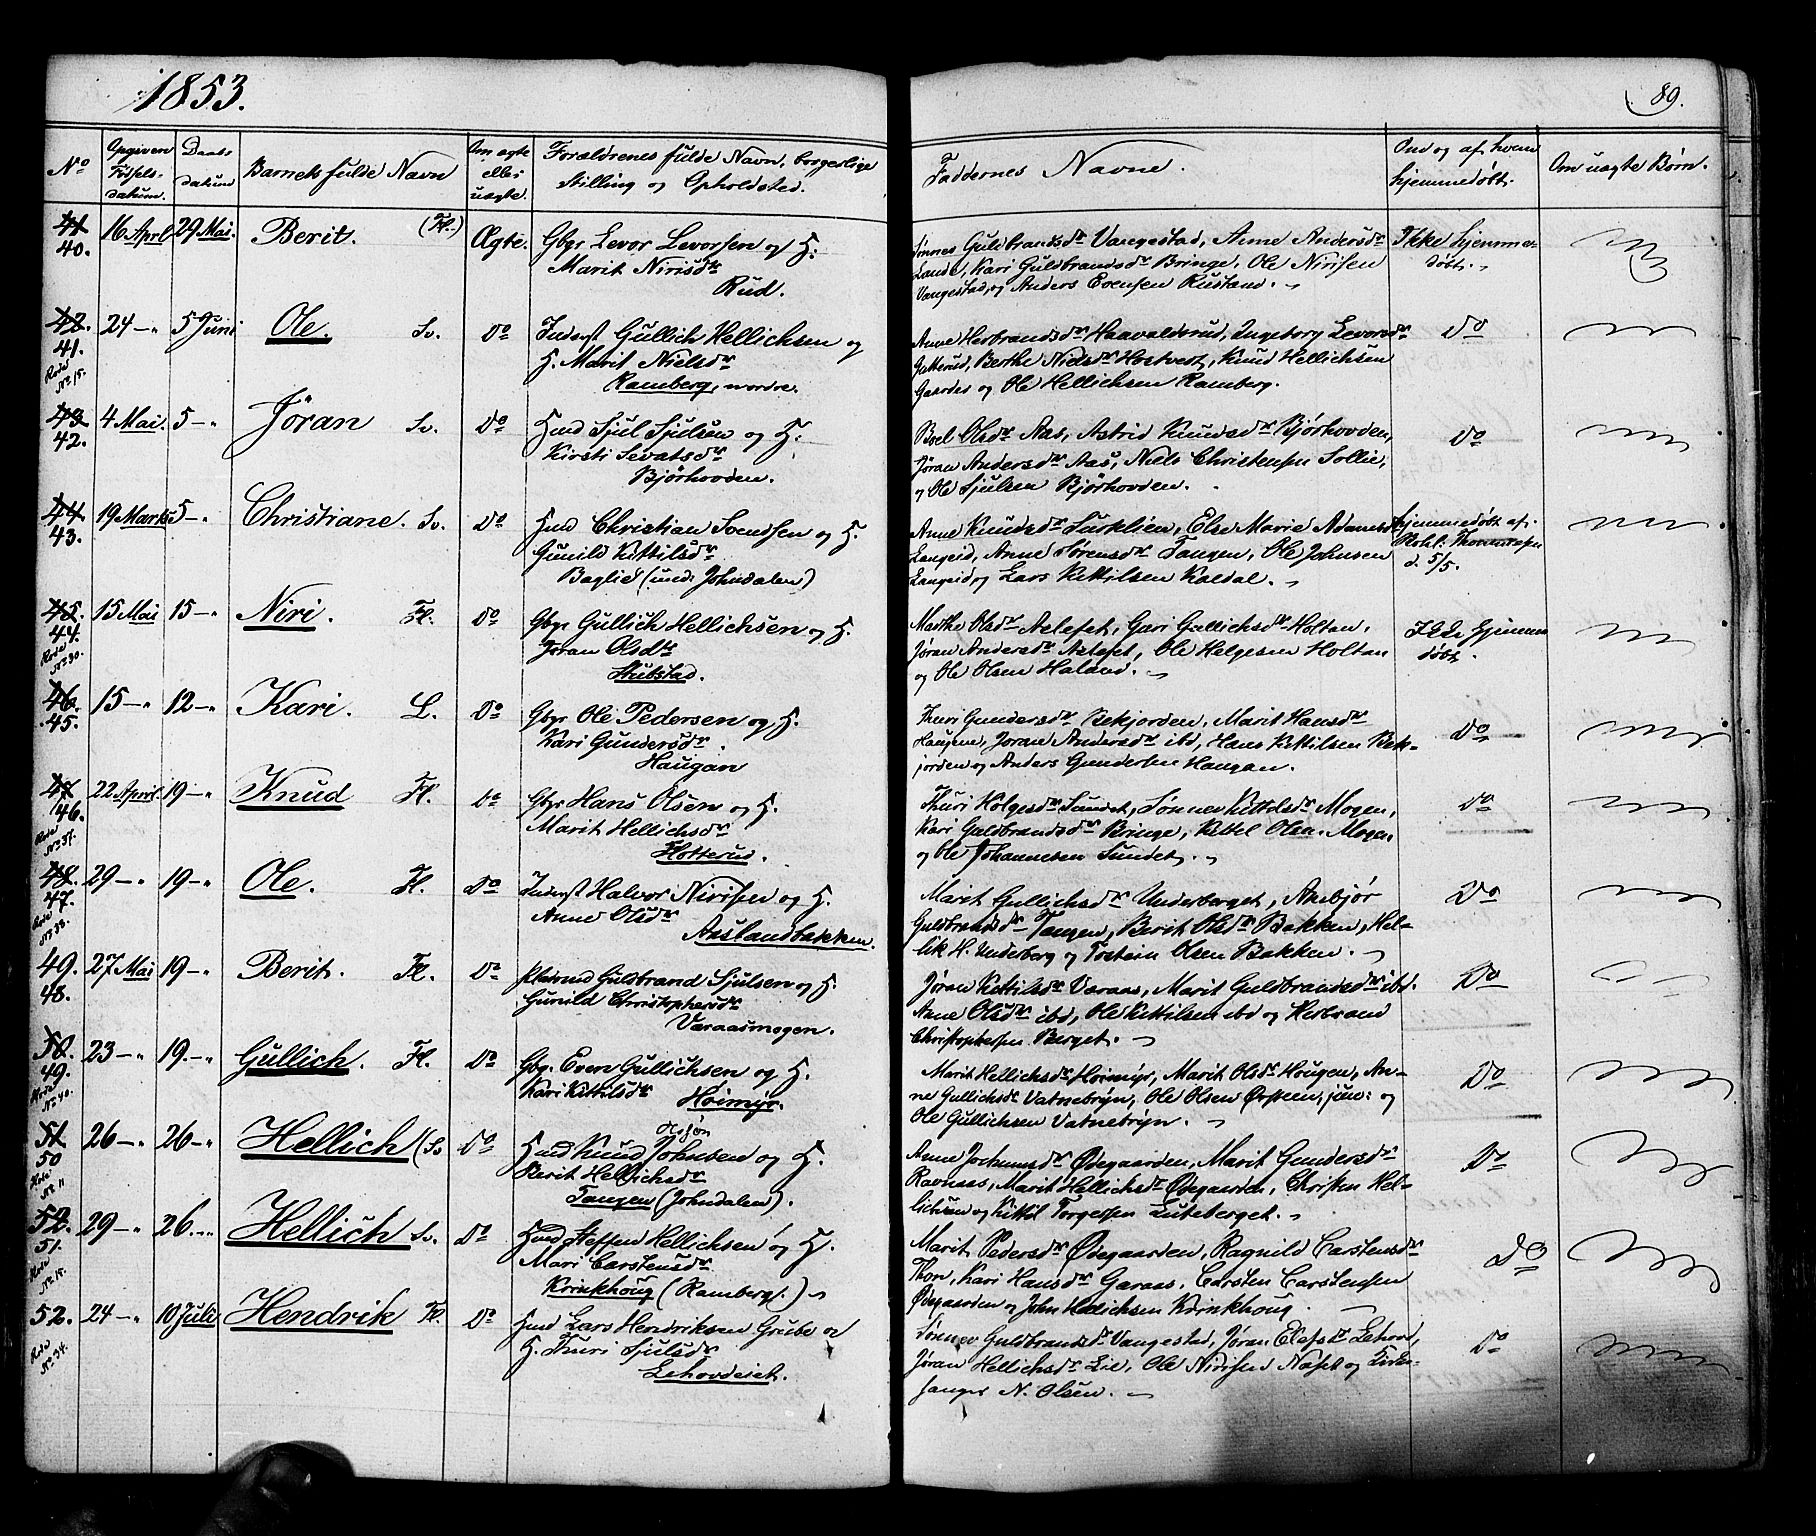 1853.
89.
No
Opgiven Fødsels- datum.
Daabs datum
Barnets fulde Navn
Om ægte eller uægte.
Forældrenes fulde Navn, borgerlige
Stilling og Opholdsted.
Faddernes Navne.
Om og af hvem
hjemmedøbt.
Om uægte Børn.
41 40. 16 April 29 Mai. Berit. (Fl.) Ægte. Gbgr Levor Levorsen og H:
Marit Nirisdr
Rud.
Sønnev Guldbrandsdr Vangestad, Anne Andersdr
Lande, Kari Guldbrandsdr Bringe, Ole Nirisen
Vangestad, og Anders Evensen Rustand.
Ikke hjemme-
døbt.
42. 41. 24 –„ 5 Juni Ole. Sv. Do Inderst Gullich Hellichsen og
H. Marit Nielsdr
Ramberg, nordre.
Rode No 15.
Anne Herbrandsdr Haavaldsrud, Ingeborg Levorsdr
Gutterud, Berthe Nielsdr Hostvest, Knud Hellichsen
Gaardes og Ole Hellichsen Ramberg.
Do
43 42. 4 Mai. 5 –„ Jöran Sv. Do Hmd Sjul Sjulsen og H:
Kirsti Sevatsdr
Bjørhovden.
Boel Olsdr Aas, Astrid Knudsdr Bjørhovden,
Jøran Andersdr Aas, Niels Christensen Sollie,
og Ole Sjulsen Bjørhovden.
Do
44 43. 19 Marts 5 –„ Christiane. Sv. Do Hmd Christian Svendsen og H.
Gunild Kittilsdr
Baglie (und: Johnsdalen)
Anne Knudsdr Turklien, Else Marie Adamsdr
Langeid, Anne Sørensdr Tangen, Ole Johnsen
Langeid og Lars Kittilsen Kaldal.
Hjemmedøbt af
Robt. Thommesen
d. 5/5.
45. 44. 15 Mai 15 –„ Niri. Fl. Do Gbgr Gullich Hellichsen og H.
Jøran Olsdr
Stubstad.
Rode No 30.
Marthe Olsdr Aslefet, Gari Gullichsdr Holtan,
Jøran Andersdr Aslefet, Ole Helgesen Holtan
og Ole Olsen Haland.
Ikke hjemme
døbt.
46. 45. 15 –„ 12 –„ Kari. L. Do Gbgr Ole Pedersen og H.
Kari Gundersdr
Haugan
Thuri Gundersdr Bekjorden, Marit Hansdr
Haugene, Joran Andersdr ibd, Hans Kittilsen Bek-
jorden og Anders Gundersen Haugan.
Do
47 46. 22 April. 19 –„ Knud Fl. Do Gbgr Hans Olsen og H.
Marit Hellichsdr
Flotterud.
Rode No 37.
Thuri Holgesdr Sundet, Sønnev Kittilsdr Mogen,
Kari Guldbrandsdr Bringe, Kittel Olsen Mogen,
og Ole Johannesen Sundet.
Do
48. 47. 29 –„ 19 –„ Ole. Fl. Do Inderst Halvor Nirisen og H.
Anne Olsdr
Aaslandbakken.
Rode No 38.
Marit Gullichsdr Underberget, Asbjør
Guldbrandsdr Tangen, Berit Olsdr Bakken, Hel-
lik H. Underberg og Tostein Olsen Bakken.
Do
49. 48. 27 Mai 19 –„ Berit. Fl. Do Pladsmd Guldbrand Sjulsen og H.
Gunild Christophersdr
Varaasmogen.
Jøran Kittilsdr Varaas, Marit Guldbrandsdr ibd.
Anne Olsdr ibd, Ole Kittilsen ibd og Herbrand
Christophersen Berget.
Do
50. 49. 23 –„ 19. –„ Gullich. Fl. Do Gbgr. Even Gullichsen og H.
Kari Kittilsdr Høimyr.
Rode No 40.
Marit Hellichsdr Høimyr, Marit Olsdr Hougen, An-
ne Gullichsdr Vatnebryn, Ole Olsen Ørsteen, jun: og
Ole Gullichsen Vatnebryn.
Do
51 50 26 –„ 26 –„ Hellich (Sv Do Hmd Knud Johnsen og H.
Berit Hellichsdr
Tangen (Johnsdalen).
Rode No 11
Anne Jochumsdr Ødegaarden, Marit Gundersdr
Ravnaas, Marit Hellichsdr Ødegaarden, Christen Hel-
lichsen og Kittil Torgersen Luteberget.
Do
52. 51. 29 –„ 26. –„ Hellich Sv. Do Hmd Steffen Hellichsen og H.
Mari Carstensdr
Krinkhoug (Ramberg.)
Rode No 15.
Marit Pedersdr Ødegaarden, Ragnild Carstensdr
Thon, Kari Hansdr Garaas, Carsten Carstensen
Ødegaarden og John Hellichsen Krinkhoug.
Do
52. 24 –„ 10 Juli Hendrik Fl. Do Hmd Lars Hendriksen Grube og
H. Thuri Sjulsdr
Lehovdeiet.
Rode No 34.
Sønnev Guldbrandsdr Vangestad, Jøran Elefsdr Lehovd,
Jøran Hellichsdr Lie, Ole Nirisen Næset og Kirke-
sanger N. Olsen.
Do